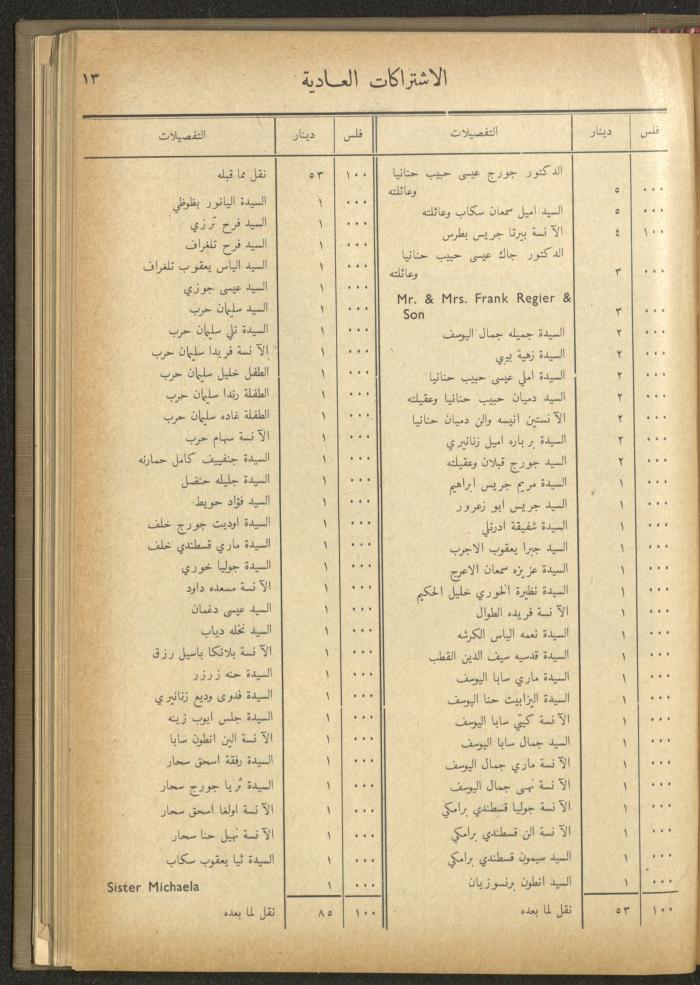 ١٣ الاشتراكات العـادية
فلس دينار التفصيلات
الدكتور جورج عيسى حبيب حنانيا
وعائلته ٥ ٠٠٠
السيد اميل سمعان سكاب وعائلته ٥ ٠٠٠
الآنسة بيرتا جريس بطرس ٤ ١٠٠
الدكتور جاك عيسى حبيب حنانيا
وعائلته ٣ ٠٠٠
Mr. & Mrs. Frank Regier &
Son ٣ ٠٠٠
السيدة جميله جمال اليوسف ٢ ٠٠٠
السيدة زهية بيبي ٢ ٠٠٠
السيدة املي عيسى حبيب حنانيا ٢ ٠٠٠
السيد دميان حبيب حنانيا وعقيلته ٢ ٠٠٠
الآنستين انيسه والن دميان حنانيا ٢ ٠٠٠
السيدة برباره اميل زنانيري ٢ ٠٠٠
السيد جورج قبلان وعقيلته ٢ ٠٠٠
السيدة مريم جريس ابراهيم ١ ٠٠٠
السيد جريس ابو زعرور ١ ٠٠٠
السيدة شفيقة ادرنلي ١ ٠٠٠
السيد جبرا يعقوب الاجرب ١ ٠٠٠
السيدة عزيزه سمعان الاعرج ١ ٠٠٠
السيدة نظيرة الخوري خليل الحكيم ١ ٠٠٠
الآنسة فريده الطوال ١ ٠٠٠
السيدة نعمه الياس الكرشه ١ ٠٠٠
السيدة قدسيه سيف الدين القطب ١ ٠٠٠
السيدة ماري سابا اليوسف ١ ٠٠٠
السيدة اليزابيت حنا اليوسف ١ ٠٠٠
الآنسة كيتي سابا اليوسف ١ ٠٠٠
السيد جمال سابا اليوسف ١ ٠٠٠
الآنسة ماري جمال اليوسف ١ ٠٠٠
الآنسة نهى جمال اليوسف ١ ٠٠٠
الآنسة جوليا قسطندي برامكي ١ ٠٠٠
الآنسة الن قسطندي برامكي ١ ٠٠٠
السيد سيمون قسطندي برامكي ١ ٠٠٠
السيد انطون برنسوزيان ١ ٠٠٠
نقل لما بعده ٥٣ ١٠٠
فلس دينار التفصيلات
نقل مما قبله ٥٣ ١٠٠
السيدة اليانور بظوظي ١ ٠٠٠
السيد فرح ترزي ١ ٠٠٠
السيد فرح تلغراف ١ ٠٠٠
السيد الياس يعقوب تلغراف ١ ٠٠٠
السيد عيسى جوزي ١ ٠٠٠
السيد سليمان حرب ١ ٠٠٠
السيدة نلي سليمان حرب ١ ٠٠٠
الآنسة فريدا سليمان حرب ١ ٠٠٠
الطفل خليل سليمان حرب ١ ٠٠٠
الطفلة رندا سليمان حرب ١ ٠٠٠
الطفلة غاده سليمان حرب ١ ٠٠٠
الآنسة سهام حرب ١ ٠٠٠
السيدة جنفييف كامل حمارنه ١ ٠٠٠
السيدة جليله حنضل ١ ٠٠٠
السيد فؤاد حويط ١ ٠٠٠
السيدة اوديت جورج خلف ١ ٠٠٠
السيدة ماري قسطندي خلف ١ ٠٠٠
السيدة جوليا خوري ١ ٠٠٠
الآنسة مسعده داود ١ ٠٠٠
السيد عيسى دغمان ١ ٠٠٠
السيد نخله دياب ١ ٠٠٠
الآنسة بلانكا باسيل رزق ١ ٠٠٠
السيدة حنه زرزر ١ ٠٠٠
السيدة فدوى وديع زنانيري ١ ٠٠٠
السيدة جلس ايوب زينه ١ ٠٠٠
الآنسة الين انطون سابا ١ ٠٠٠
السيدة رفقة اسحق سحار ١ ٠٠٠
السيدة ثريا جورج سحار ١ ٠٠٠
الآنسة اولغا اسحق سحار ١ ٠٠٠
الآنسة نهيل حنا سحار ١ ٠٠٠
السيدة ثيا يعقوب سكاب ١ ٠٠٠
Sister Michaela ١ ٠٠٠
نقل لما بعده ٨٥ ١٠٠